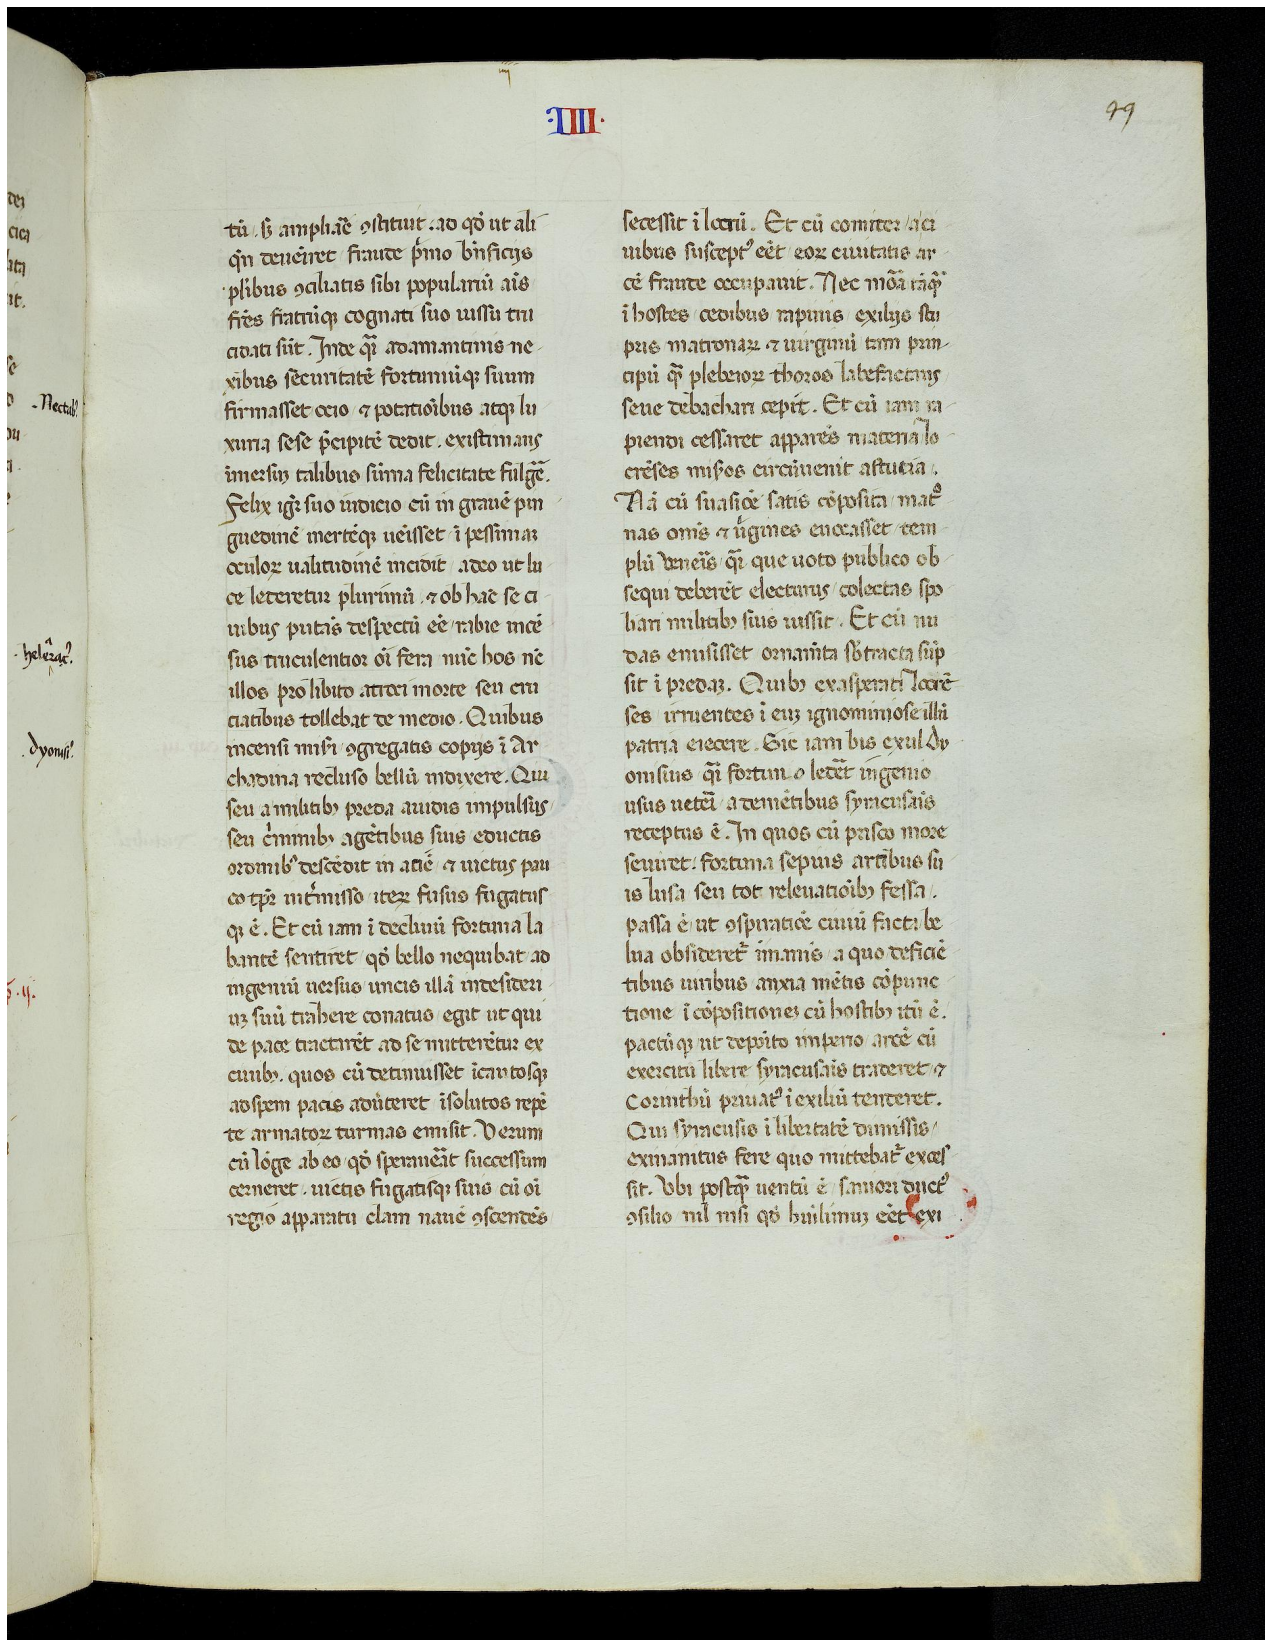 ·IIII·
49
tū. sꝫ ampliare ꝯstituit. ad qđ ut ali
qñ deueiret fraude pͥmo bn̄ficijs
plibus ꝯciliatis sibi popularium ais
fres fratruꝫqꝫ cognati suo iussu tru
cidati sūt. Inde qͣi adamantinis ne
xibus securitatē fortunuꝫqꝫ suum
firmasset ocio ⁊ potatioibus atqꝫ lu
xuria sese p̄cipitē dedit. existimans
ūmersus talibus sūma felicitate fulgere.
Felix igͥ suo iudicio cū in grauē pin
guedinē inertēqꝫ uēisset ī pessimaꝫ
oculoꝝ ualitudinē incidit adeo ut lu
ce lederetur plurimū. ⁊ ob hac se ci
uibus putās despectū eē rabie incē
sus truculentior oī fera nūc hos nūc
illos pro libito atroci morte seu cru
ciatibus tollebat de medio. Quibus
incensi misͥi ꝯgregatis copijs ī Ar
chadina recluso bellū indixere. Qui
seu a militibꝫ preda auidis impulsus
seu cͥminibꝫ agētibus suis eductis
ordinibꝫ descēdit in aciē ⁊ uictus pau
co tp̄r intͥmisso iteꝝ fusus fugatus
qꝫ ē. Et cū iam ī decliuū fortuna la
bantē sentiret qđ bello nequibat ad
ingeniū uersus uncis illā in desideri
uꝫ suū trahere conatus egit ut qui
de pace tractarēt ad se mitterētur ex
ciuibꝫ. quos cū detinuisset īcautosqꝫ
ad spem pacis aduceret īsolutos repē
te armatoꝝ turmas emisit. Verum
cū lōge ab eo qđ sperauēat successum
cerneret. uictis fugatisqꝫ suis cū oī
regio apparatu clam nauē ꝯscendēs
secessit ī locrū. Et cū comiter a ci
uibus susceptꝰ eēt eoꝝ ciuitatis ar
cē fraude occupauit. Nec mōa tāqͣꝫ
ī hostes cedibus rapinis exilijs stu
pris matronaꝝ ⁊ uirginū tam prin
cipū qͣꝫ plebeioꝝ thoros labefactans
seue debachari cepit. Et cū iam ra
piendi cessaret apparēs materia lo
crēses misͥos circūuenit astutia.
Nā cū suasioē satis cōposita matͦ
nas omīs ⁊ uͥgines euocasset tem
plū ueneris qͣi que uoto publico ob
sequi deberēt electurus colectas spo
liari militibꝫ suis iussit. Et cū nu
das emisisset ornamīta sbtracta sūp
sit ī predaꝫ. Quibꝫ exasperati locrē
ses irruentes ī euꝫ ignominiose illū
patria eiecere. Sic iam bis exul dy
onisius qͣi fortune lederēt ingenio
usus ueteri a dementibus syracusais
receptus ē. In quos cū prisco more
seuiret. fortuna sepius artibus su
is lusa seu tot releuatioibꝫ fessa.
passa ē ut ꝯspiratioē ciuiū facta be
lua obsideretͬ īmanis a quo deficiē
tibus uiribus anxia mētis cōpunc
tione ī cōpositioneꝫ cū hostibꝫ itū ē.
pactūqꝫ ut deposito imperio arcē cū
exercitu libere syracusais traderet ⁊
Corinthū priuatꝰ ī exiliū tenderet.
Qui syracusis ī libertatē dimissis
exinanitus fere quo mittebatͬ exces
sit. Vbi postqͣꝫ uentū ē saniori ductꝰ
ꝯsilio nil nisi qđ humilimuꝫ eēt exi